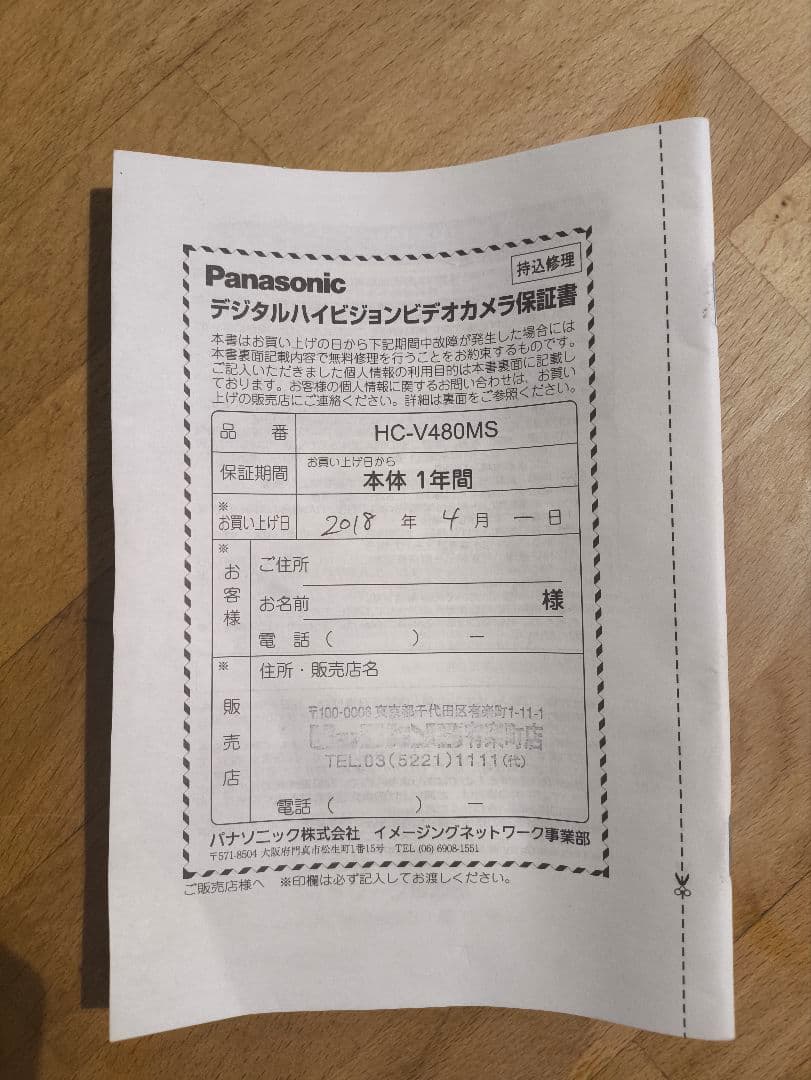 持込修理
Panasonic
デジタルハイビジョンビデオカメラ保証書
本書はお買い上げの日から下記期間中故障が発生した場合には
本書裏面記載内容で無料修理を行うことをお約束するものです。
ご記入いただきました個人情報の利用目的は本書裏面に記載し
ております。お客様の個人情報に関するお問い合わせは、お買い
上げの販売店にご連絡ください。詳細は裏面をご参照ください。
品 番 HC-V480MS
保証期間 お買い上げ日から
本体 1年間
※
お買い上げ日 2018 年 4 月 一 日
※
お客様
ご住所
お名前 様
電 話 ( ) ー
※
販売店
住所・販売店名
〒100-0006 東京都千代田区有楽町1-11-1
有楽町店
TEL.03(5221)1111(代)
電話 ( ) ー
パナソニック株式会社 イメージングネットワーク事業部
〒571-8504 大阪府門真市松生町1番15号 TEL (06) 6908-1551
ご販売店様へ ※印欄は必ず記入してお渡しください。